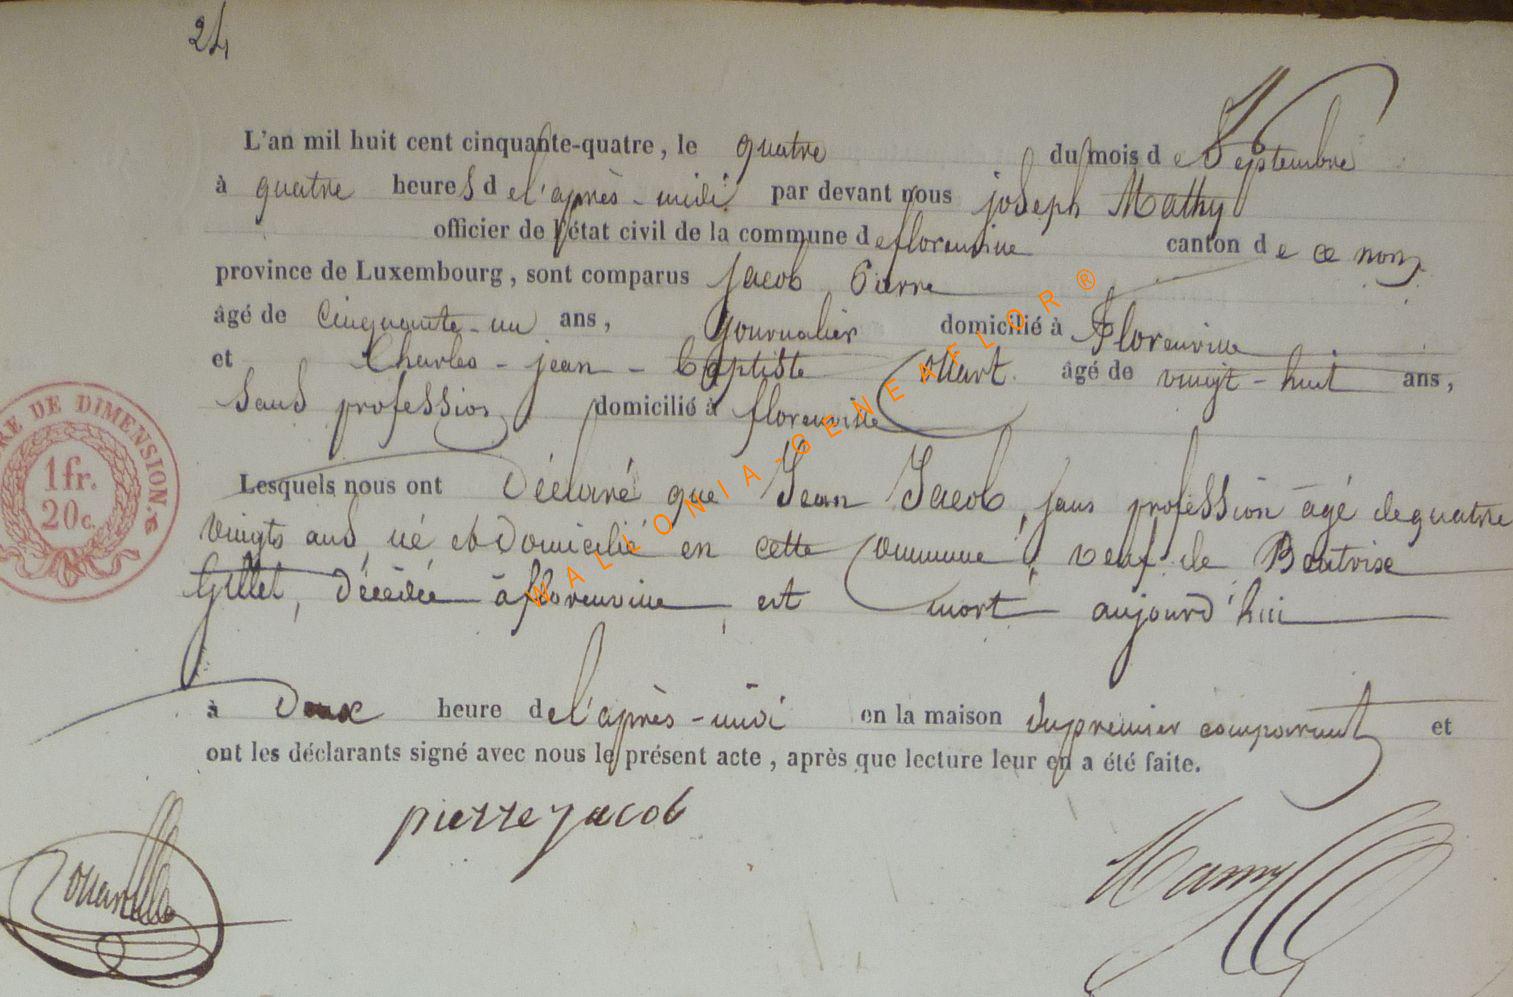 24
L'an mil huit cent cinquante-quatre, le quatre du mois de Septembre
à quatre heures de l'après-midi par devant nous joseph Mathy
officier de l'état civil de la commune de florenville canton de ce nom
province de Luxembourg, sont comparus Jacob Pierre
âgé de Cinquante-un ans, journalier domicilié à Florenville
et Charles-jean-baptiste âgé de vingt-huit ans,
sans profession domicilié à florenville
Lesquels nous ont Déclaré que Jean Jacob, sans profession âgé de quatre
vingts ans, né et Domicilié en cette Commune, veuf de Beatrixe
Gillet, Décédée à florenville est mort aujourd'hui
à Deux heure de l'après-midi en la maison du premier comparant et
ont les déclarants signé avec nous le présent acte, après que lecture leur en a été faite.
pierre jacob
RE DE DIMENSION.
1 fr.
20c.
WALLONIA-GENEAFLOR®